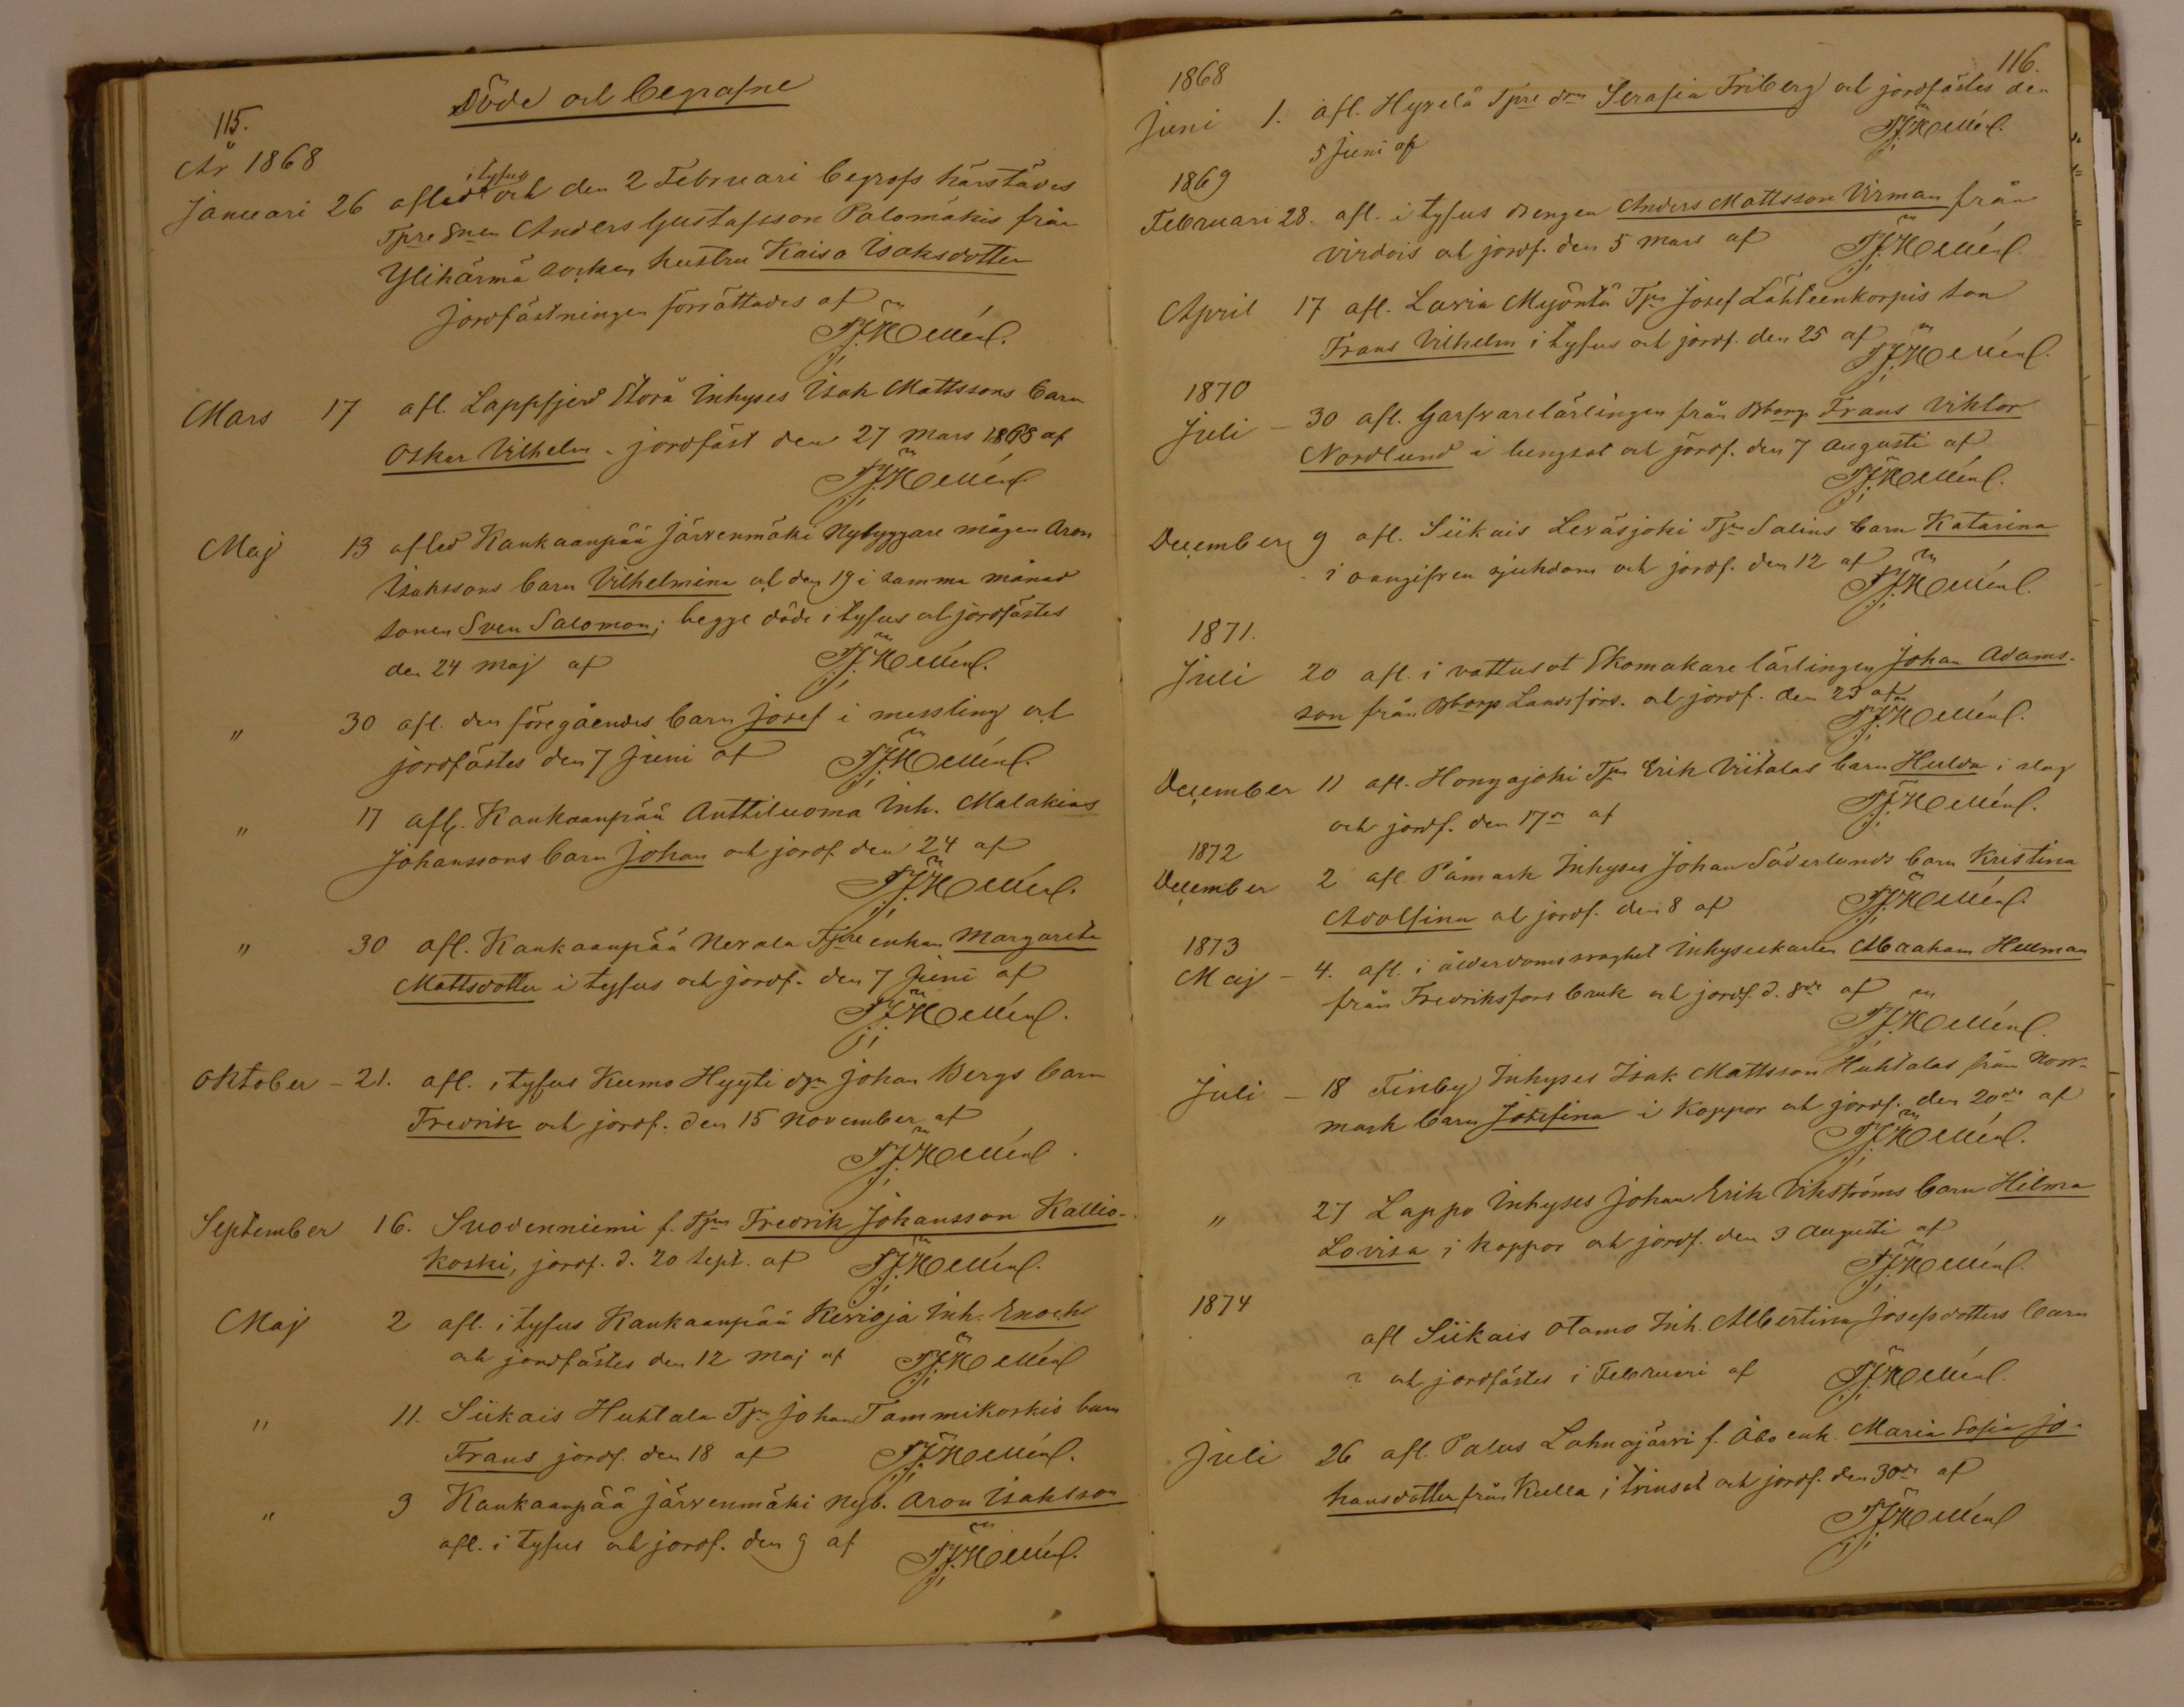 115.
Döde och begrafne
År 1868
Januari 26 afled i tyfus och den 2 Februari begrofs härstädes
Tpre Snen Anders Gustafsson Palomäkis från
Ylihärmä socken hustru Kaisa Isaksdotter
jordfästningen förrättades af
Mars 17 afl. Lappfjerd Storå Inhyses Isak Mattssons barn
Oskar Vilhelm. jordfäst den 27 Mars 1868 af
Maj 13 afled Kankaanpää Järvenmäki Nybyggare mågen Aron
Isakssons barn Vilhelmina och den 19 i samma månad
sonen Sven Salomon; begge döde i tyfus och jordfästes
den 24 Maj af
" 30 afl. den föregåendes barn Josef i messling och
jordfästes den 7 Juni af
" 17 afl. Kankaanpää Anttiluoma Inh. Malakias
Johanssons barn Johan och jordf. den 24 af
" 30 afl. Kankaanpää Nevala Tpre enkan Margareta
Mattsdotter i tyfus och jordf. den 7 Juni af
Oktober – 21. afl. i tyfus Kumo Hyyti Johan Bergs barn
Fredrik och jordf. den 15 November af
September 16. Suodenniemi f. Tpn Fredrik Johansson Kallio-
koski, jordf. d. 20 Sept. af
Maj 2 afl. i tyfus Kankaanpää Kerioja Inh. Enoch
och jordfästes den 12 Maj af
" 11. Siikais Huhtala Tpn Johan Tammikoskis barn
Frans jordf. den 18 af
" 3 Kankaanpää Järvenmäki Nyb. Aron Isaksson
afl. i tyfus och jordf. den 9 af
116.
1868
Juni 1. afl. Hyvelä Tpre drn Serafia Friberg och jordfästes den
5 Juni af
1869
Februari 28. afl. i tyfus Drengen Anders Mattsson Virman från
Virdois och jordf. den 5 Mars af
April 17 afl. Lavia Myöntä Tpn Josef Lähteenkorpis son
Frans Vilhelm i tyfus och jordf. den 25 af
1870
Juli – 30 afl. Garfvarelärlingen från Bborg Frans Viktor
Nordlund i lungsot och jordf. den 7 Augusti af
December 9 afl. Siikais Leväsjoki Tpn Salins barn Katarina
i oangifven sjukdom och jordf. den 12 af
1871.
Juli 20 afl. i vattusot Skomakare lärlingen Johan Adams-
son från Bborgs Landsförs. och jordf. den 23 af
December 11 afl. Hongajoki Tpn Erik Viitalas barn Hulda i slag
och jordf. den 17 af
1872
December 2 afl. Påmark Inhyses Johan Söderlunds barn Kristina
Adolfina och jordf. den 8 af
1873
Maj – 4. afl. i ålderdomssvaghet Inhysekarlen Abraham Hellman
från Fredriksfors bruk och jordf. d. 8de af
Juli – 18 Finby Inhyses Isak Mattsson Huhtalas från Norr-
mark barn Josefina i Koppor och jordf. den 20de af
" 27 Lappo Inhyses Johan Erik Vikströms barn Hilma
Lovisa i koppor och jordf. den 3 Augusti af
1874
afl Siikais Otamo Inh. Albertina Josefsdotters barn
? och jordfästes i Februari af
Juli 26 afl. Palus Lahnajärvi f. Åbo enk. Maria Sofia Jo-
hansdotter från Kulla i trinsot och jordf. den 30de af